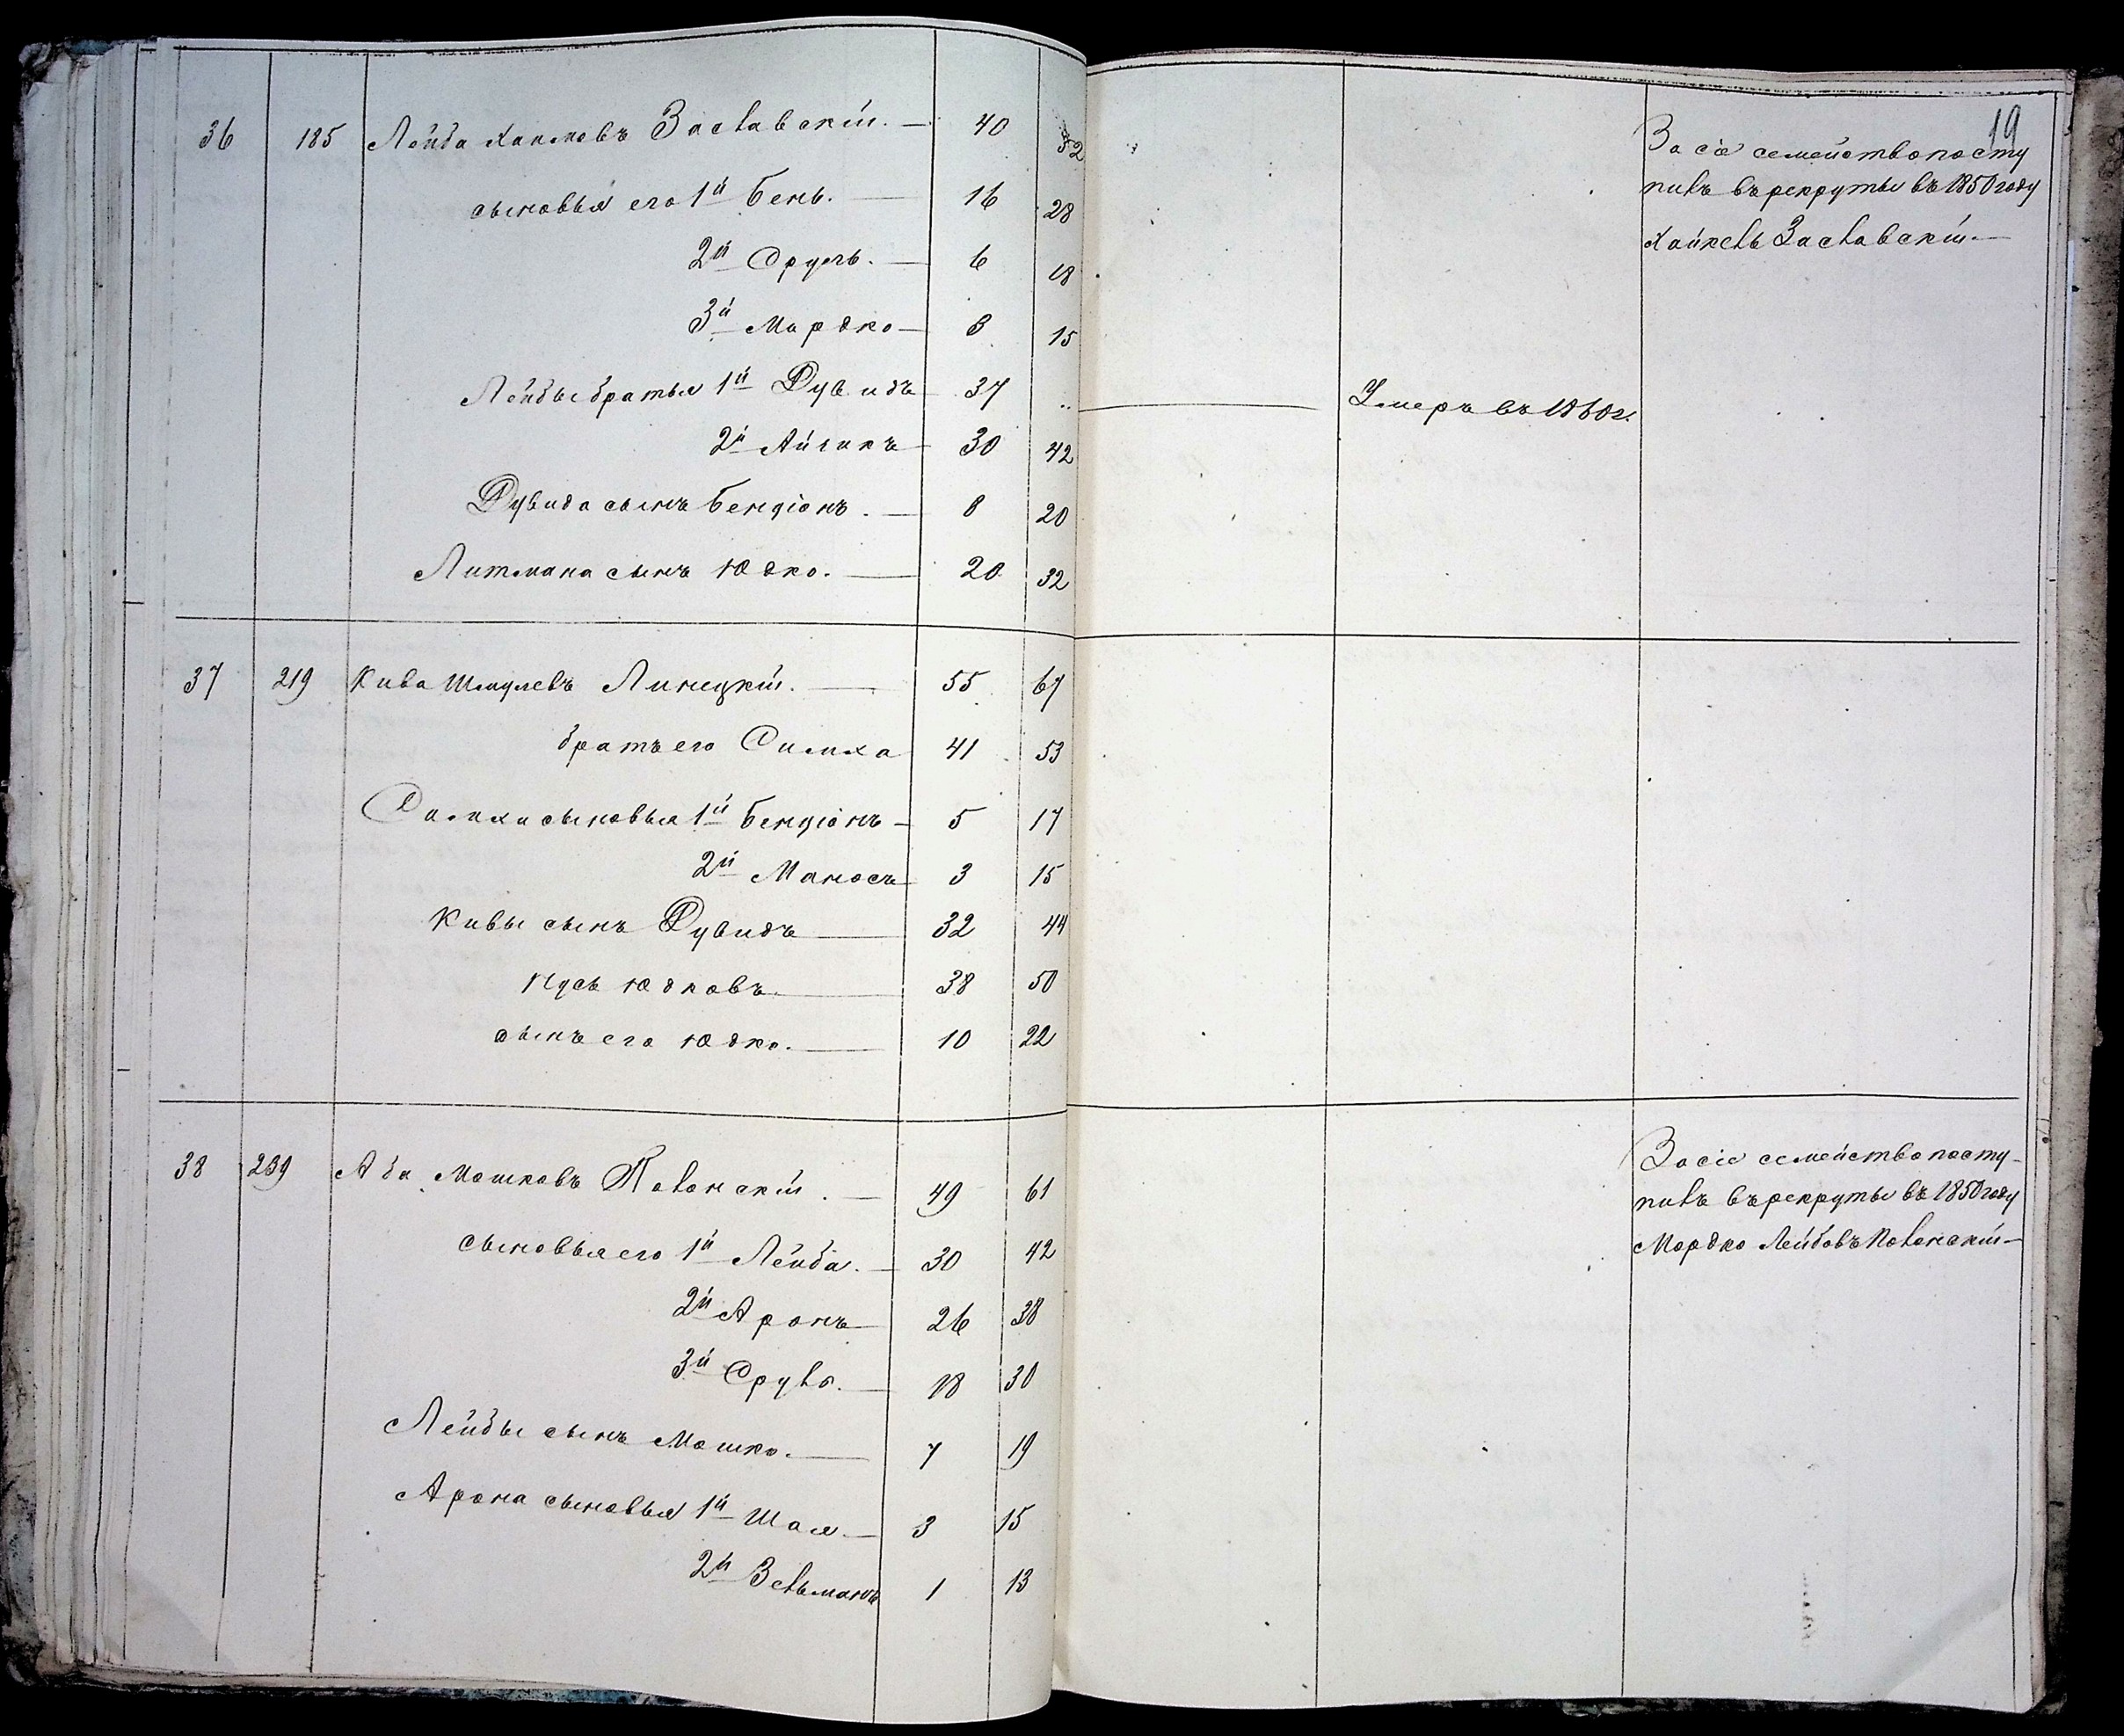 19
36 185 Лейба Хаимовъ Заславскій. — 40 52
сыновья его 1й Бень. — 16 28
2й Сруль. — 6 18
3й Мордко — 3 15
Лейбы братья 1й Дувидъ 37 .. — Умеръ въ 1860г.
2й Айзикъ — 30 42
Дувида сынъ Бенціонъ. — 8 20
Литмана сынъ Юдко. — 20 32
За сіе семейство посту
пилъ въ рекруты въ 1850 году
Хайкель Заславскій. —
37 219 Кива Шмулевъ Линецкій. — 55 67
братъ его Симха 41 53
Симхи сыновья 1й Бенціонъ — 5 17
2й Маносъ 3 15
Кивы сынъ Дувидъ — 32 44
Нусь Юдковъ. — 38 50
сынъ его Юдко. — 10 22
38 239 Аба Мошковъ Полонскій. — 49 61
сыновья его 1й Лейба. — 30 42
2й Аронъ — 26 38
3й Сруль. — 18 30
Лейбы сынъ Мошко. — 7 19
Арона сыновья 1й Шая. — 3 15
2й Зельманъ 1 13
За сіе семейство посту-
пилъ въ рекруты въ 1850 году
Мордко Лейбовъ Полонскій —